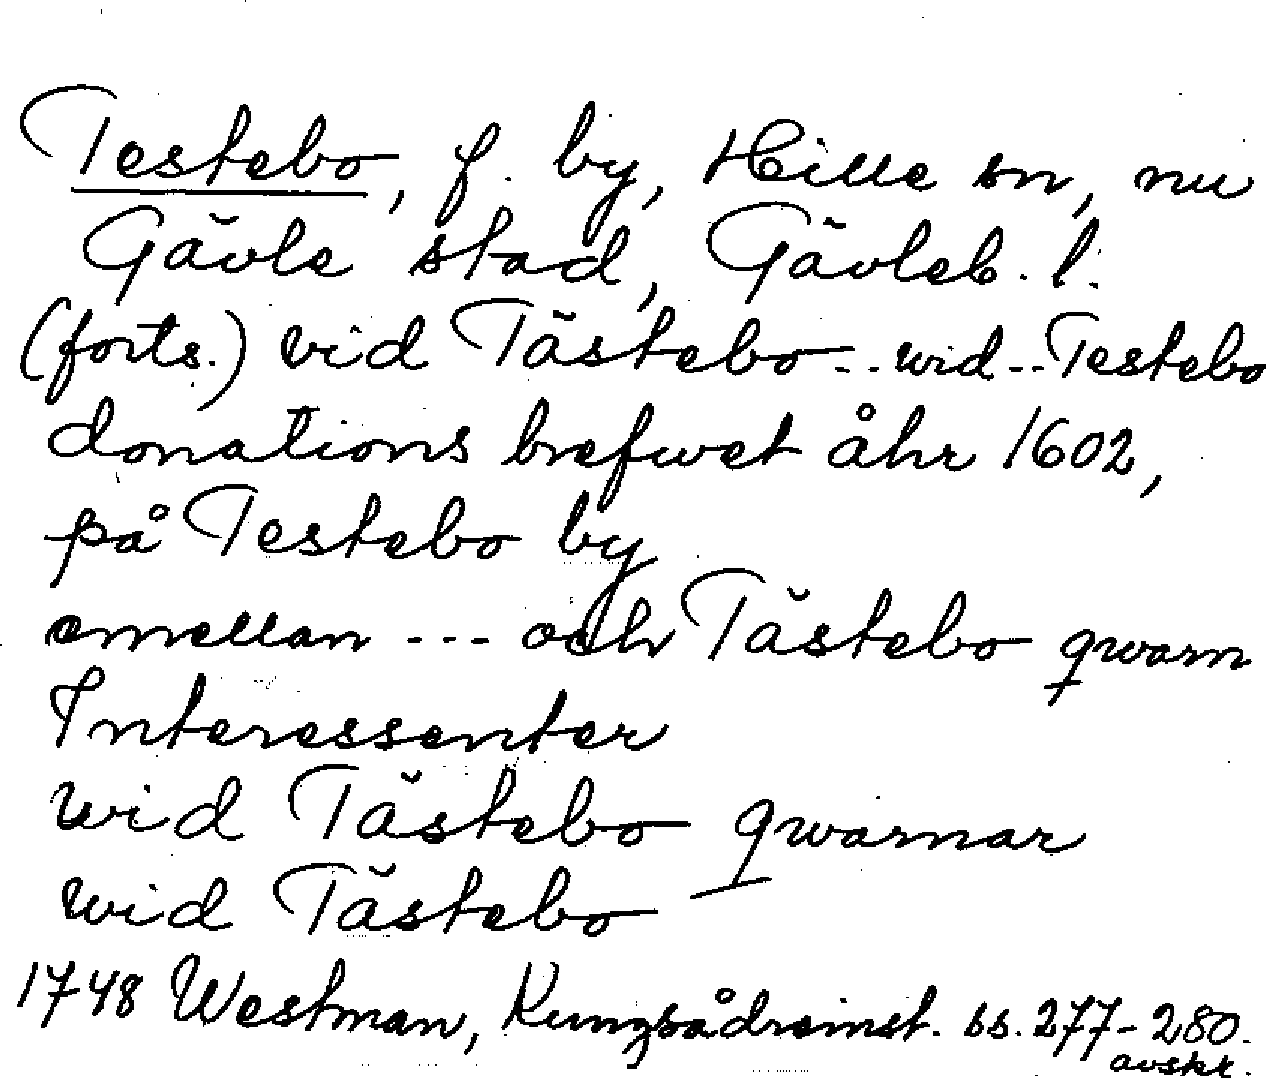 Testebo, f. by, Hille sn, nu
Gävle stad, Gävleb. l.
(forts.) vid Tästebo - . . wid - - Testebo
donations brefwet åhr 1602,
på Testebo by
emellan - - - och Tästebo qwarn
Interessenter
wid Tästebo qwarnar
wid Tästebo
1748 Westman, Kungsådreinst. ss. 277-280.
avskr.